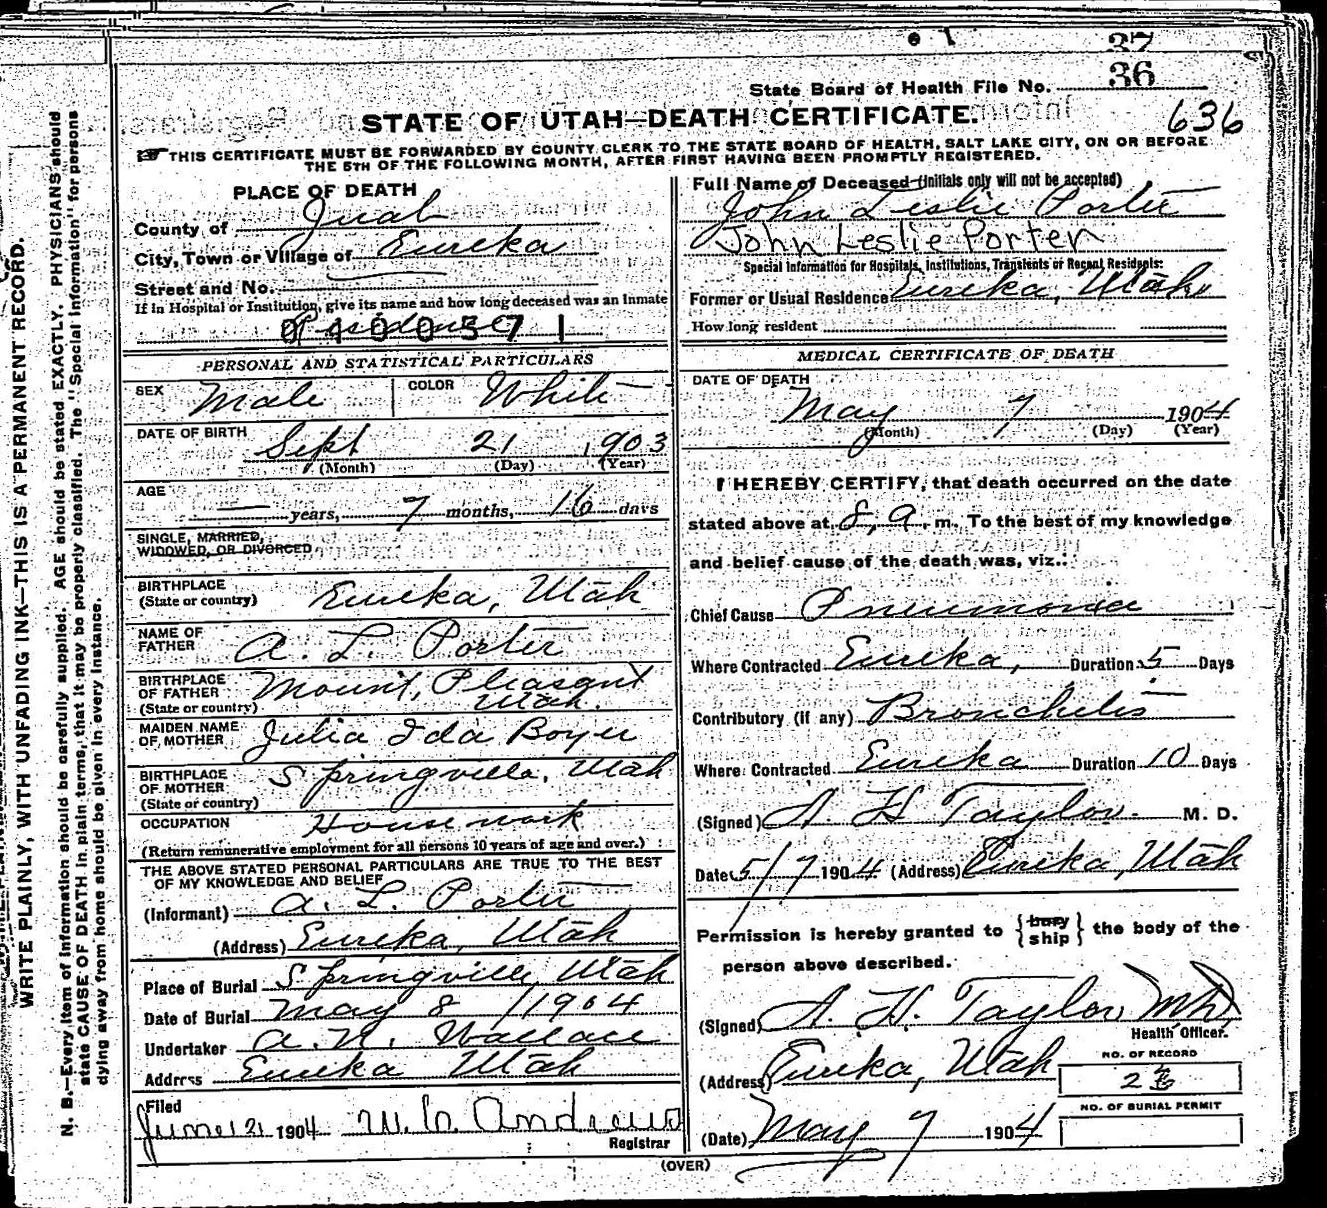 37
36
State Board of Health File No.
636
STATE OF UTAH—DEATH CERTIFICATE.
THIS CERTIFICATE MUST BE FORWARDED BY COUNTY CLERK TO THE STATE BOARD OF HEALTH, SALT LAKE CITY, ON OR BEFORE
THE 5TH OF THE FOLLOWING MONTH, AFTER FIRST HAVING BEEN PROMPTLY REGISTERED.
WRITE PLAINLY, WITH UNFADING INK—THIS IS A PERMANENT RECORD.
N. B.—Every item of information should be carefully supplied. AGE should be stated EXACTLY. PHYSICIANS should
state CAUSE OF DEATH in plain terms, that it may be properly classified. The "Special Information" for persons
dying away from home should be given in every instance.
PLACE OF DEATH
County of Juab
City, Town or Village of Eureka
Street and No.
If in Hospital or Institution, give its name and how long deceased was an inmate
Residence
0400571
PERSONAL AND STATISTICAL PARTICULARS
SEX Male COLOR White
DATE OF BIRTH Sept 21 1903
(Month) (Day) (Year)
AGE — years, 7 months, 16 days
SINGLE, MARRIED,
WIDOWED, OR DIVORCED
BIRTHPLACE
(State or country) Eureka, Utah
NAME OF
FATHER A. L. Porter
BIRTHPLACE
OF FATHER Mount Pleasant
(State or country) Utah.
MAIDEN NAME
OF MOTHER Julia Ida Boyer
BIRTHPLACE
OF MOTHER Springville, Utah
(State or country)
OCCUPATION Housework
(Return remunerative employment for all persons 10 years of age and over.)
THE ABOVE STATED PERSONAL PARTICULARS ARE TRUE TO THE BEST
OF MY KNOWLEDGE AND BELIEF
(Informant) A. L. Porter
(Address) Eureka, Utah
Place of Burial Springville, Utah
Date of Burial May 8 / 1904
Undertaker A. N. Wallace
Address Eureka Utah
Filed
June 21 1904 W. C. Andrews
Registrar
Full Name of Deceased (Initials only will not be accepted)
John Leslie Porter
John Leslie Porter
Special Information for Hospitals, Institutions, Transients or Recent Residents:
Former or Usual Residence Eureka, Utah
How long resident
MEDICAL CERTIFICATE OF DEATH
DATE OF DEATH
May 7 1904
(Month) (Day) (Year)
I HEREBY CERTIFY, that death occurred on the date
stated above at 8, a. m. To the best of my knowledge
and belief cause of the death was, viz.:
Chief Cause Pneumonia
Where Contracted Eureka, Duration 5 Days
Contributory (if any) Bronchitis
Where Contracted Eureka Duration 10 Days
(Signed) A. H. Taylor. M. D.
Date 5/7 1904 (Address) Eureka, Utah
Permission is hereby granted to { bury ship } the body of the
person above described.
(Signed) A. H. Taylor, MD
Health Officer.
(Address) Eureka, Utah
NO. OF RECORD
NO. OF BURIAL PERMIT
(Date) May 7 1904
(OVER)